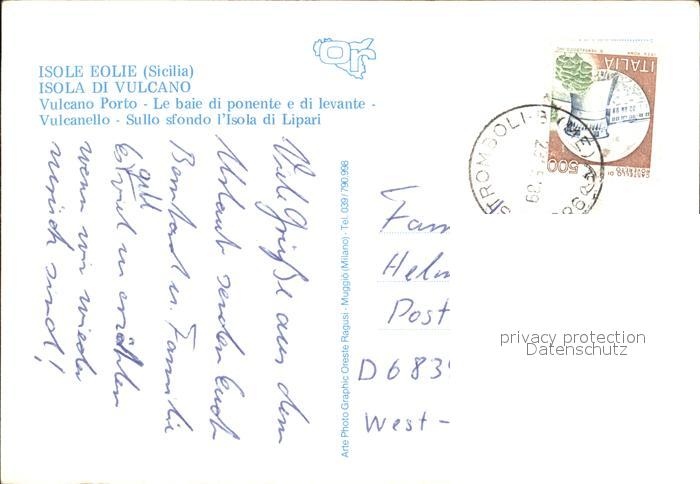 ISOLE EOLIE (Sicilia)
ISOLA DI VULCANO
Vulcano Porto - Le baie di ponente e di levante -
Vulcanello - Sullo sfondo l'Isola di Lipari
Viele Grüße aus dem
Urlaub senden Euch
Bernhard u. Familie
Es gibt viel zu erzählen
wenn wir wieder
zurück sind!
Arte Photo Graphic Oreste Ragusi - Muggiò (Milano) - Tel. 039/790.998
ITALIA
500
CASTELLO DI ROVERETO
STROMBOLI
(ME)
Fam
Helm
Post
D 683
West-
privacy protection
Datenschutz